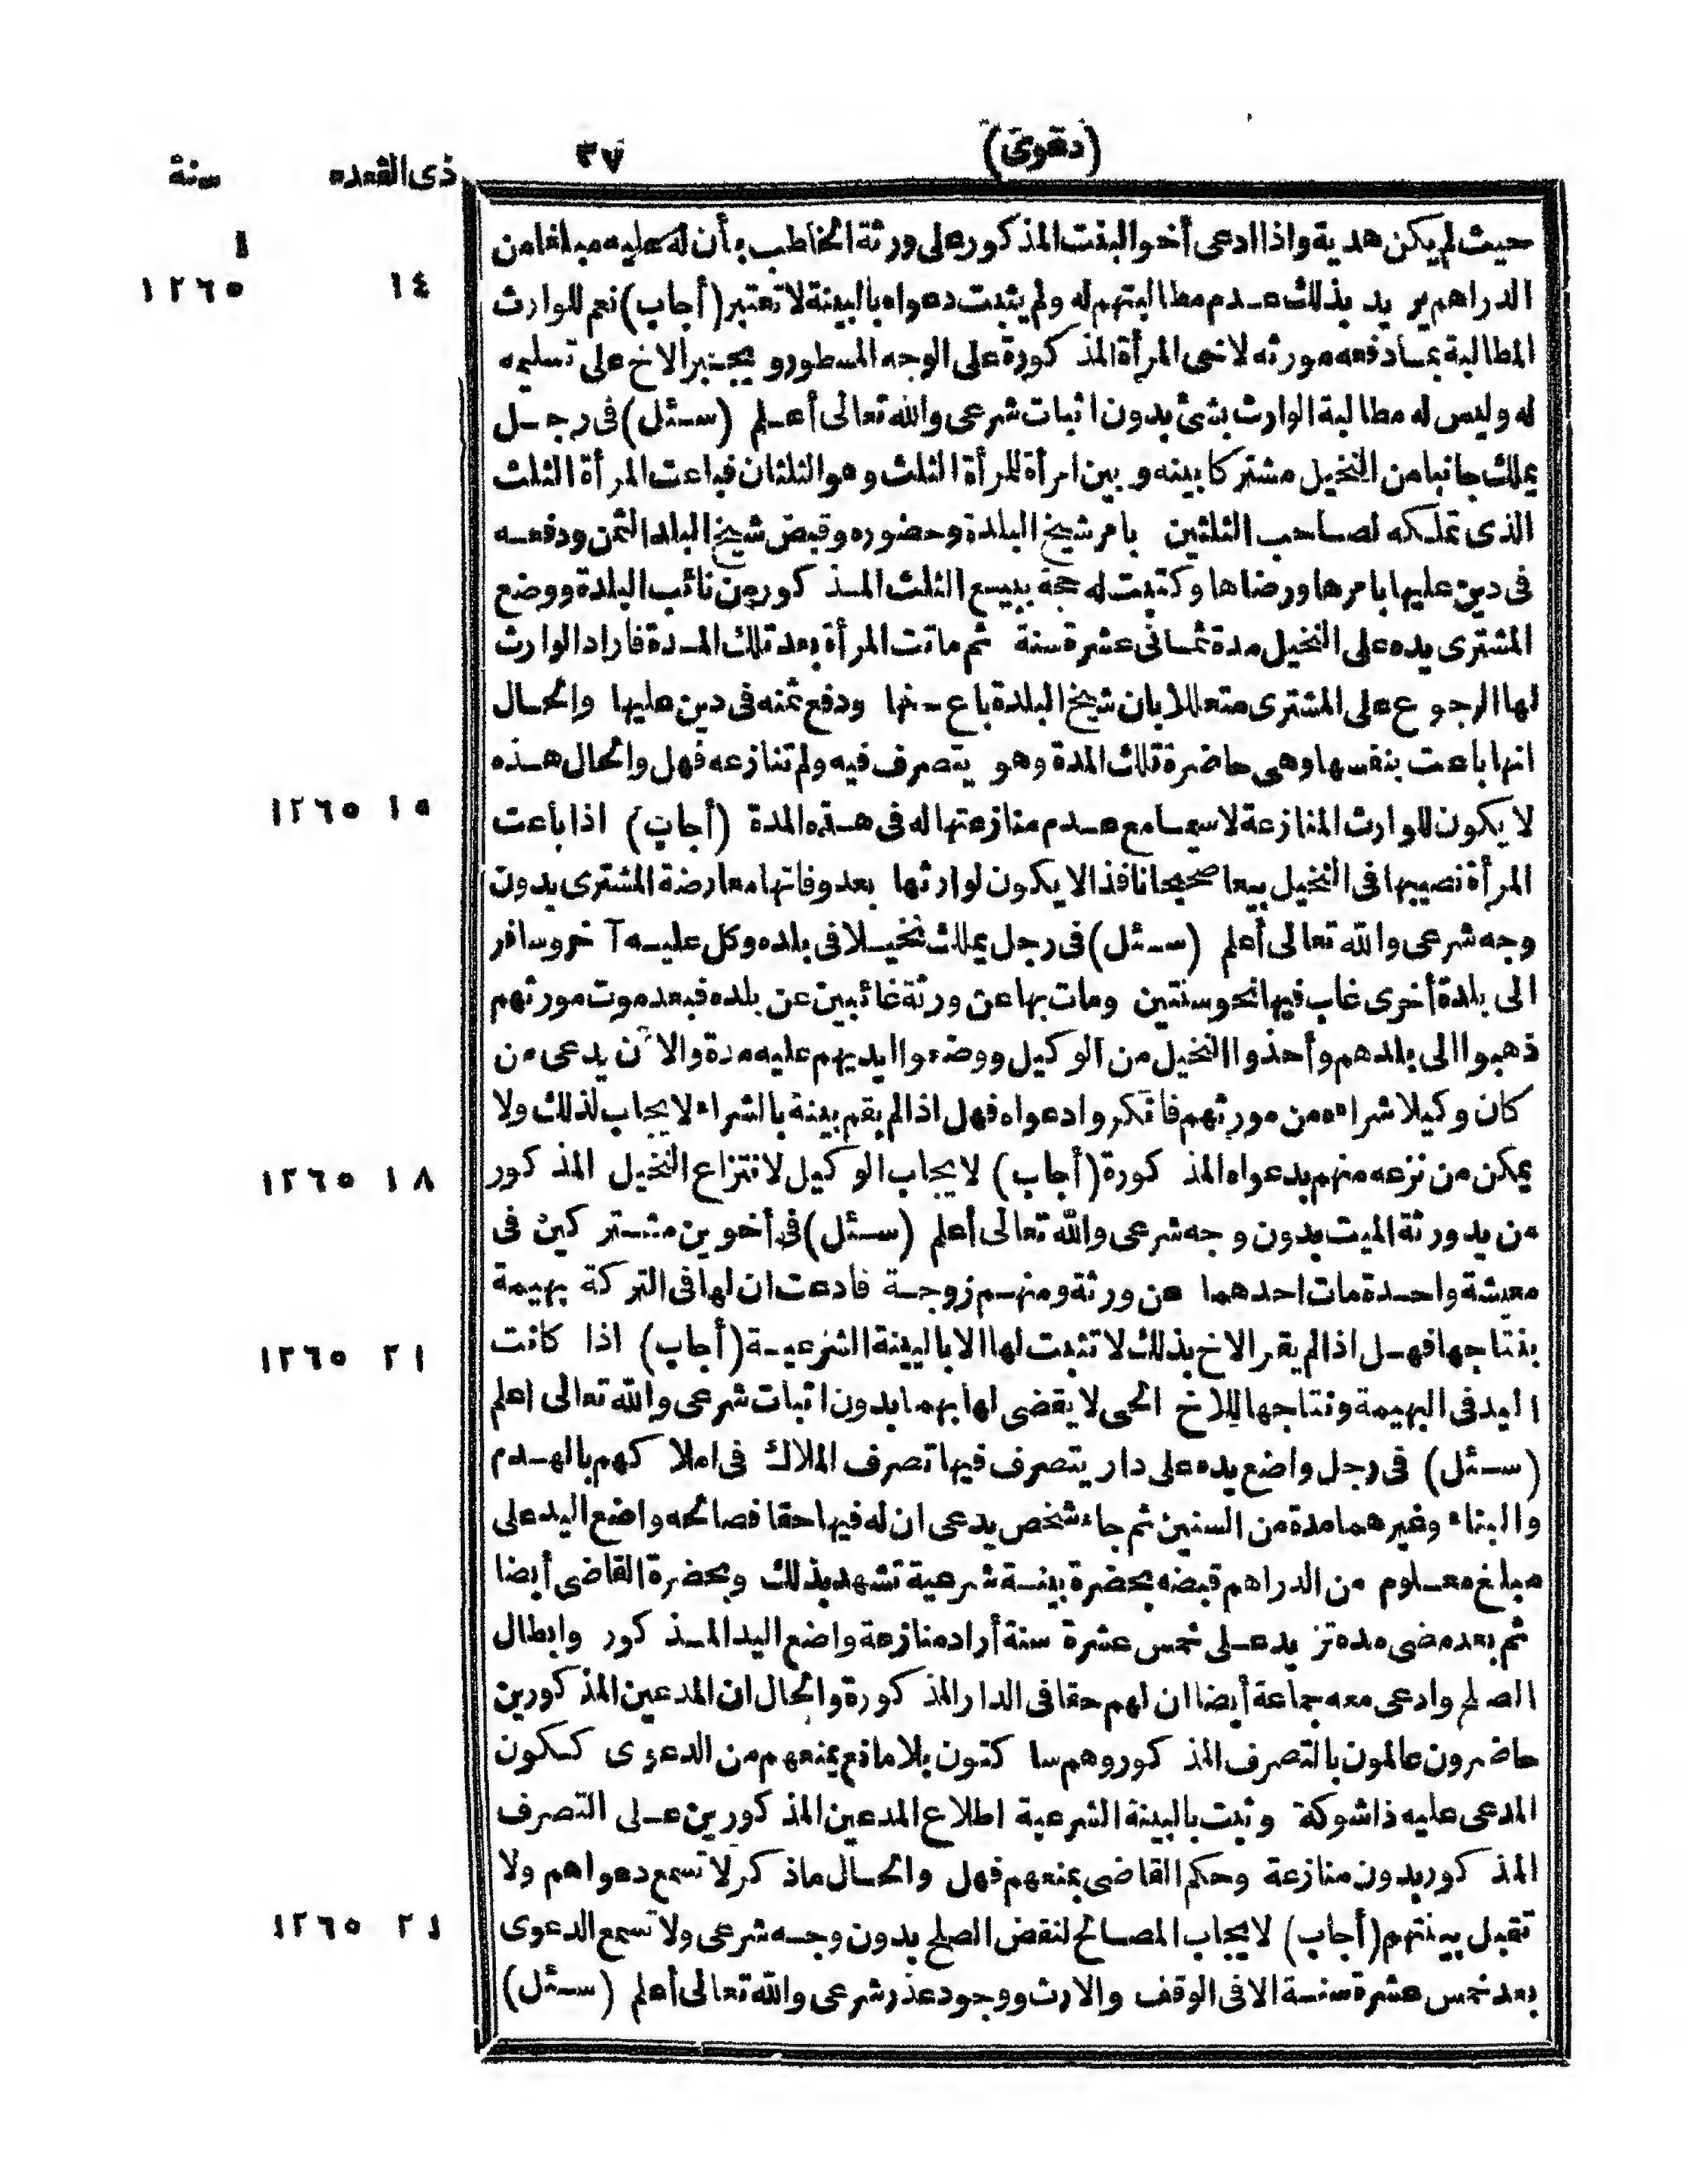 (دعوى)
٣٧
ذى القعده سنة
حيث لم يكن هدية واذا ادعى أخو البنت المذكور على ورثة الخاطب بأن له عليه مبلغا من
الدراهم يريد بذلك عدم مطالبتهم له ولم يثبت دعواه بالبينة لا تعتبر (أجاب) نعم للوارث
١٤ ١٢٦٥
المطالبة بما دفعه مورثه لاخى المرأة المذكورة على الوجه المسطور ويجبر الاخ على تسليمه
له وليس له مطالبة الوارث بشئ بدون اثبات شرعى والله تعالى أعلم (سئل) فى رجل
يملك جانبا من النخيل مشتركا بينه وبين امرأة للمرأة الثلث وهو الثلثان فباعت المرأة الثلث
الذى تملكه لصاحب الثلثين بامر شيخ البلدة وحضوره وقبض شيخ البلد الثمن ودفعه
فى دين عليها بامرها ورضاها وكتبت له حجة ببيع الثلث المذكور من نائب البلدة ووضع
المشترى يده على النخيل مدة ثمانى عشرة سنة ثم ماتت المرأة بعد تلك المدة فاراد الوارث
لها الرجوع على المشترى متعللا بان شيخ البلدة باع عنها ودفع ثمنه فى دين عليها والحال
انها باعت بنفسها وهى حاضرة تلك المدة وهو يتصرف فيه ولم تنازعه فهل والحال هذه
لا يكون للوارث المنازعة لاسيما مع عدم منازعتها له فى هذه المدة (أجاب) اذا باعت
١٥ ١٢٦٥
المرأة نصيبها فى النخيل بيعا صحيحا نافذا لا يكون لوارثها بعد وفاتها معارضة المشترى بدون
وجه شرعى والله تعالى أعلم (سئل) فى رجل يملك نخيلا فى بلده وكل عليه آخر وسافر
الى بلدة أخرى غاب فيها نحو سنتين ومات بها عن ورثة غائبين عن بلده فبعد موت مورثهم
ذهبوا الى بلدهم وأخذوا النخيل من الوكيل ووضعوا ايديهم عليه مدة والآن يدعى من
كان وكيلا شراءه من مورثهم فانكروا دعواه فهل اذا لم يقم بينة بالشراء لا يجاب لذلك ولا
يمكن من نزعه منهم بدعواه المذكورة (أجاب) لا يجاب الوكيل لانتزاع النخيل المذكور
١٨ ١٢٦٥
من يد ورثة الميت بدون وجه شرعى والله تعالى أعلم (سئل) فى أخوين مشتركين فى
معيشة واحدة مات احدهما عن ورثة ومنهم زوجة فادعت ان لها فى التركة بهيمة
بنتاجها فهل اذا لم يقر الاخ بذلك لا تثبت لها الا بالبينة الشرعية (أجاب) اذا كانت
٢١ ١٢٦٥
اليد فى البهيمة ونتاجها للاخ الحى لا يقضى لها بهما بدون اثبات شرعى والله تعالى اعلم
(سئل) فى رجل واضع يده على دار يتصرف فيها تصرف الملاك فى املاكهم بالهدم
والبناء وغيرهما مدة من السنين ثم جاء شخص يدعى ان له فيها حقا فصالحه واضع اليد على
مبلغ معلوم من الدراهم قبضه بحضرة بينة شرعية تشهد بذلك وبحضرة القاضى أيضا
ثم بعد مضى مدة تزيد على خمس عشرة سنة أراد منازعة واضع اليد المذكور وابطال
الصلح وادعى معه جماعة أيضا ان لهم حقا فى الدار المذكورة والحال ان المدعين المذكورين
حاضرون عالمون بالتصرف المذكور وهم ساكتون بلا مانع يمنعهم من الدعوى ككون
المدعى عليه ذا شوكة وثبت بالبينة الشرعية اطلاع المدعين المذكورين على التصرف
المذكور بدون منازعة وحكم القاضى بمنعهم فهل والحال ماذكر لا تسمع دعواهم ولا
تقبل بينتهم (أجاب) لا يجاب المصالح لنقض الصلح بدون وجه شرعى ولا تسمع الدعوى
٢١ ١٢٦٥
بعد خمس عشرة سنة الا فى الوقف والارث ووجود عذر شرعى والله تعالى أعلم (سئل)